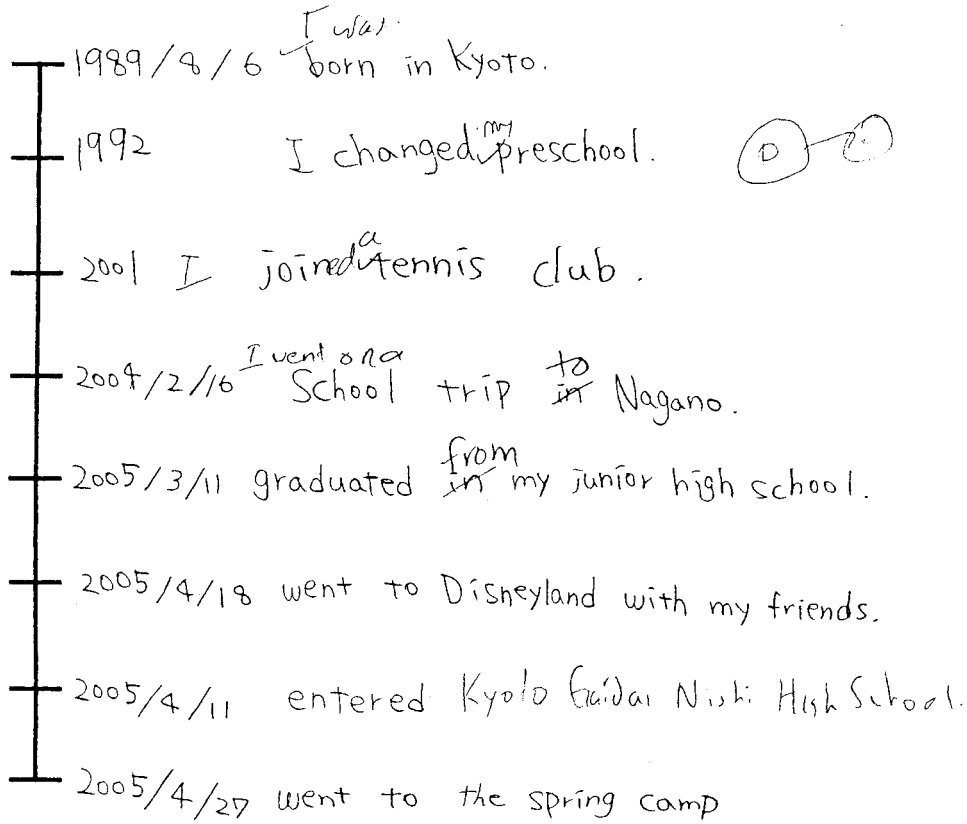 I was
1989/8/6 born in Kyoto.
1992 I changed my preschool.
2001 I joined a tennis club.
I went on a
2004/2/16 School trip in to Nagano.
2005/3/11 graduated in from my junior high school.
2005/4/18 went to Disneyland with my friends.
2005/4/11 entered Kyoto Gaidai Nishi High School.
2005/4/27 went to the spring camp